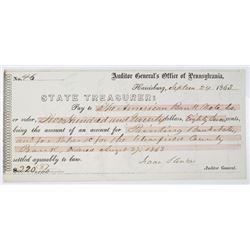 Auditor General's Office of Pennsylvania,
No. 46
Harrisburg, Septem 24, 1863
STATE TREASURER:
Pay to The American Bank Note Co
or order, Two Hundred and Twenty dollars, Eighty cents,
being the amount of an account for Printing Bank notes
and for paper &c for the Clearfield County
Bank, March August 27 1863
settled agreeably to law.
Isaac Slenker
$220